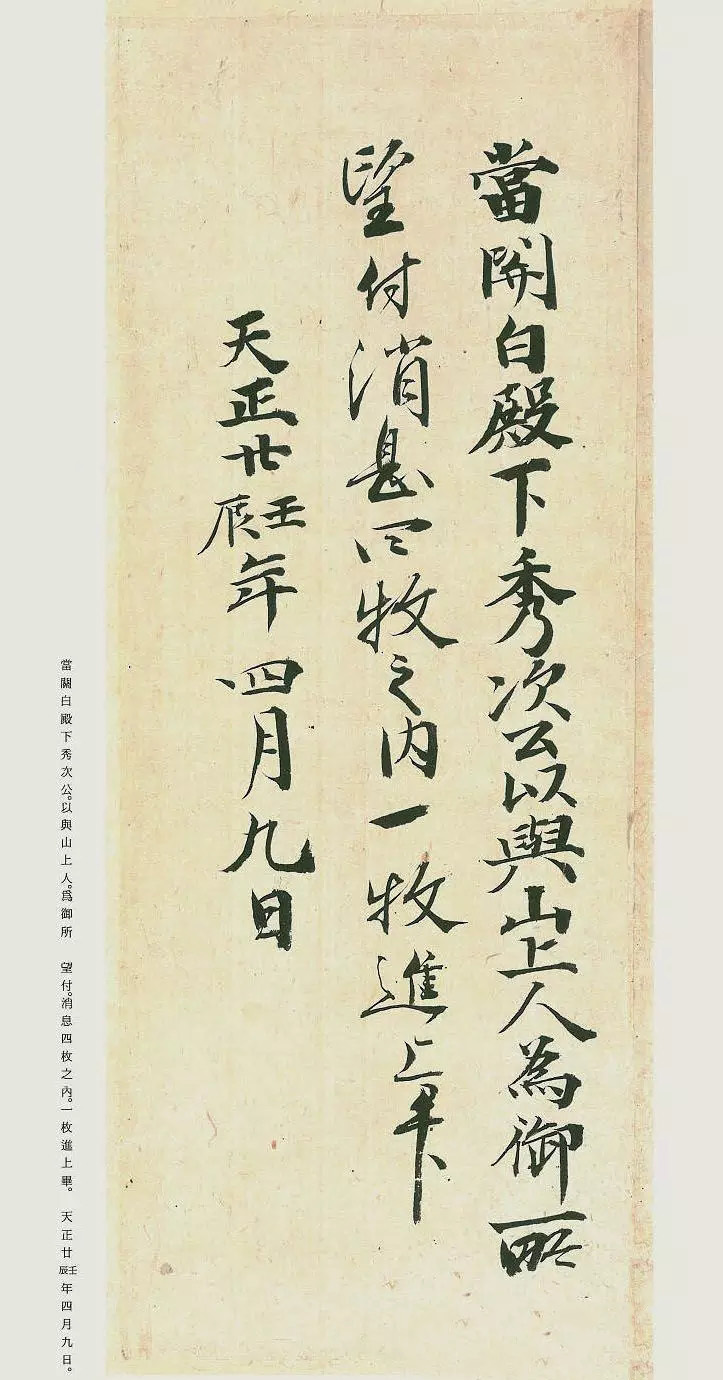 當関白殿下秀次公以與山上人為御所
望付消息四枚之内一枚進上畢
天正廿壬辰年四月九日
當關白殿下秀次公。以與山上人。爲御所 望付。消息四枚之內。一枚進上畢。 天正廿壬辰年四月九日。